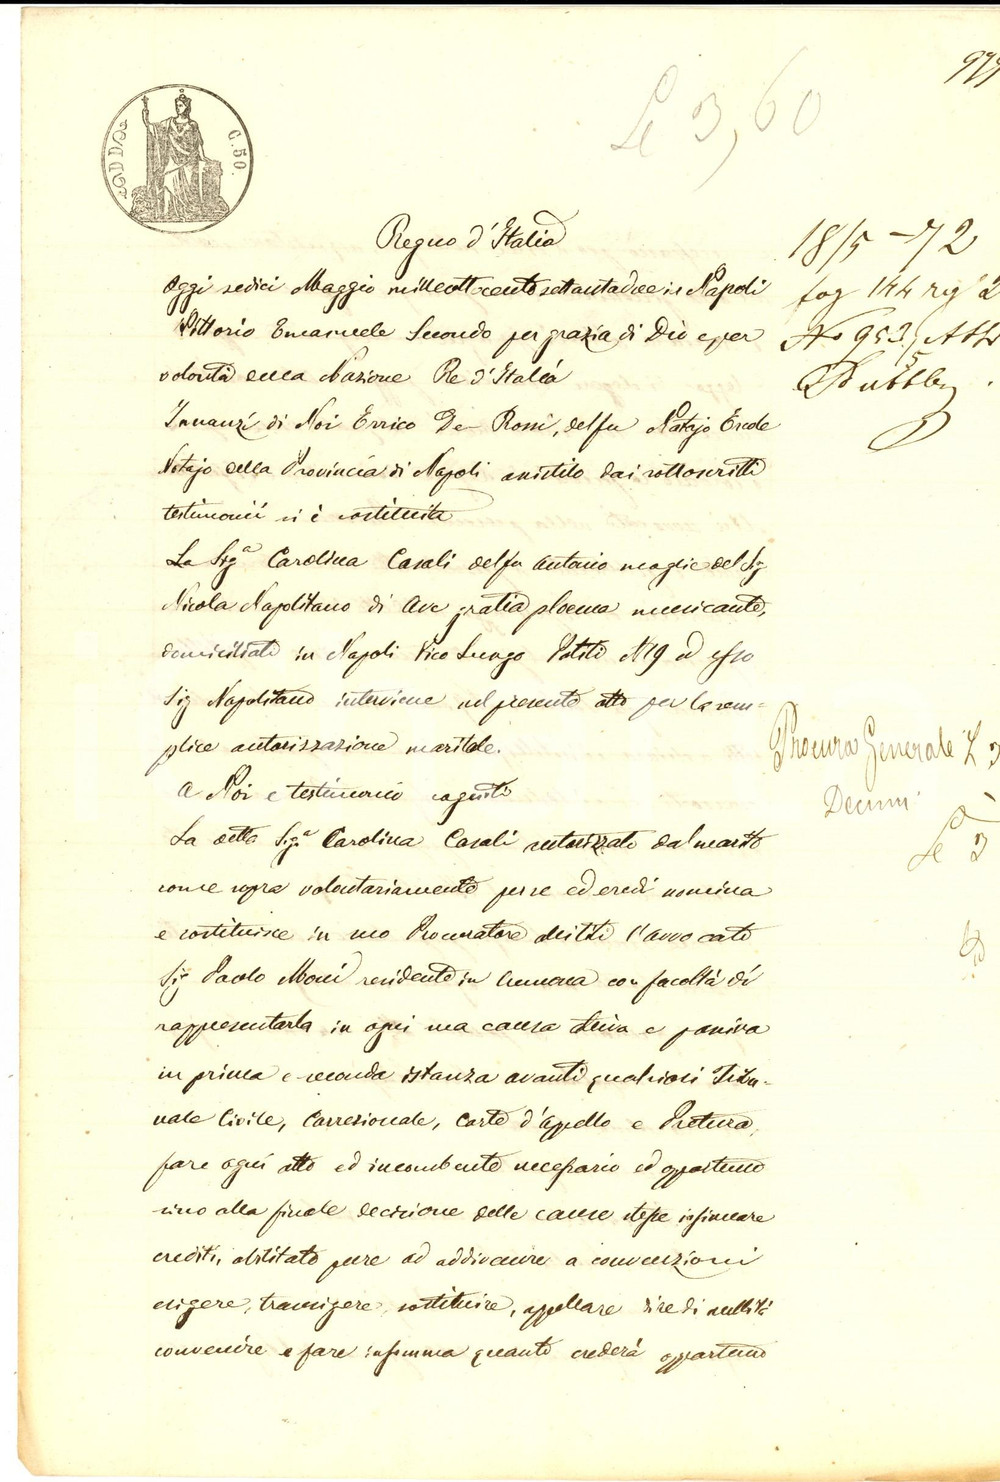 C. 50.
Le 3,60
Regno d'Italia
Oggi sedici Maggio milleottocentosettantadue in Napoli
Vittorio Emanuele Secondo per grazia di Dio e per
volontà della Nazione Re d'Italia
Innanzi di Noi Errico De Rossi, del fu Notajo
Notajo della Provincia di Napoli assistito dai sottoscritti
testimonii si è costituita
La Sigª Carolina Casali del fu Antonio moglie del Sig
Nicola Napolitano di Ave gratia plena musicante,
domiciliati in Napoli Vico Lungo N 19 ed esso
Sig Napolitano interviene nel presente atto per la sem=
plice autorizzazione maritale.
A Noi e testimonio cogniti
La detta Sigª Carolina Casali autorizzata dal marito
come sopra volontariamente per se ed eredi nomina
e costituisce in suo Procuratore alle liti l'avvocato
Sig Paolo Moni residente in con facoltà di
rappresentarla in ogni sua causa attiva e passiva
in prima e seconda istanza avanti qualsiasi Tribu-
nale Civile, Correzionale, Corte d'appello e Pretura,
fare ogni atto ed incombente necessario ed opportuno
sino alla finale decisione delle cause stesse insinuare
crediti, abilitato pure ad addivenire a convenzioni
esigere, transigere, sostituire, appellare dire di nullità
convenire e fare insomma quanto crederà opportuno
18/5 - 72
fog 144 rg 2
No 953
Procura Generale L 3
Decimi
Le 3